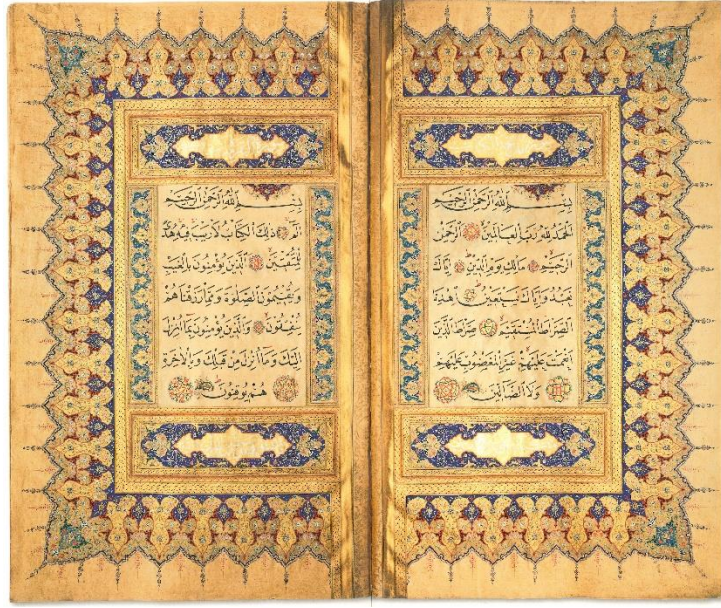 بِسْمِ اللّٰهِ الرَّحْمٰنِ الرَّحِيمِ
اَلْحَمْدُ لِلّٰهِ رَبِّ الْعَالَمِينَ اَلرَّحْمٰنِ
الرَّحِيمِ مَالِكِ يَوْمِ الدِّينِ اِيَّاكَ
نَعْبُدُ وَاِيَّاكَ نَسْتَعِينُ اِهْدِنَا
الصِّرَاطَ الْمُسْتَقِيمَ صِرَاطَ الَّذِينَ
اَنْعَمْتَ عَلَيْهِمْ غَيْرِ الْمَغْضُوبِ عَلَيْهِمْ
وَلَا الضَّالِّينَ
بِسْمِ اللّٰهِ الرَّحْمٰنِ الرَّحِيمِ
الٓمٓ ذٰلِكَ الْكِتَابُ لَا رَيْبَ فِيهِ هُدًى
لِلْمُتَّقِينَ اَلَّذِينَ يُؤْمِنُونَ بِالْغَيْبِ
وَيُقِيمُونَ الصَّلٰوةَ وَمِمَّا رَزَقْنَاهُمْ
يُنْفِقُونَ وَالَّذِينَ يُؤْمِنُونَ بِمَا اُنْزِلَ
اِلَيْكَ وَمَا اُنْزِلَ مِنْ قَبْلِكَ وَبِالْاٰخِرَةِ
هُمْ يُوقِنُونَ